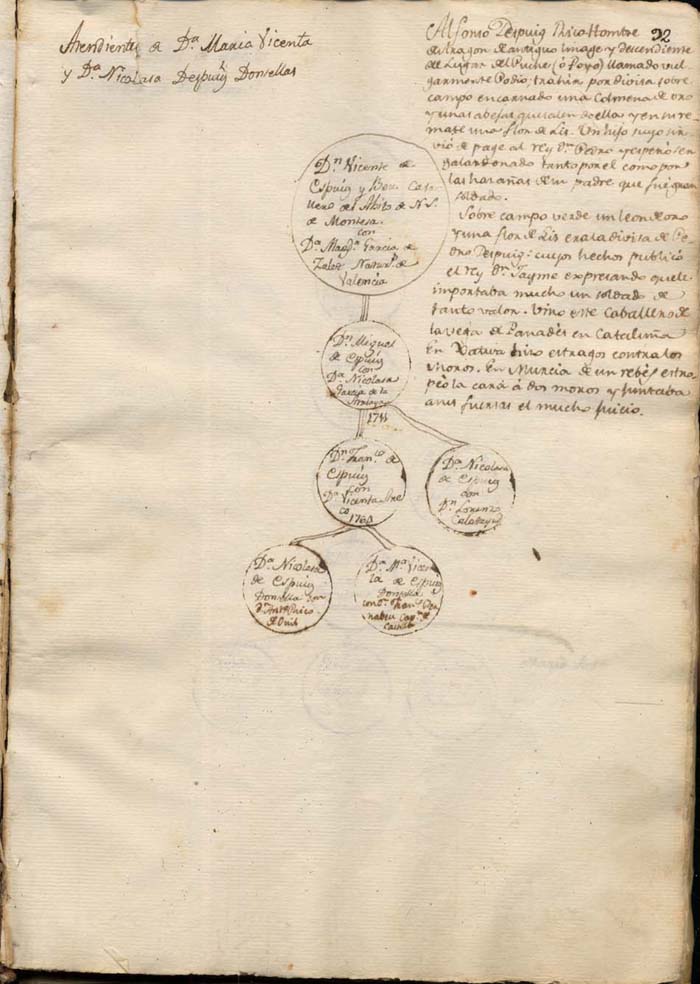 Acendientes de D.ª Maria Vicenta
y D.ª Nicolasa Despuig Donsellas
32
Alfonso Despuig Rico Hombre
de Aragon de antiguo linage y descendiente
del Lugar del Puche (ô Poyo) llamado vul-
garmente Podio; trahia por divisa sobre
campo encarnado una Colmena de oro
y unas abejas que salen de ella y en su re-
mate una flor de Lis. Un hijo suyo sir-
vió de page al rey D.n Pedro
galardonado tanto por el como por
las hazañas de su padre que fué gran
soldado.
Sobre campo verde un leon de oro
y una flor de Lis era la divisa de Pe-
dro Despuig: cuyos hechos publicó
el rey D.n Jayme expresando que le
importaba mucho un soldado de
tanto valor. Vino este caballero de
la vega de Panadès en Cataluña
En Xativa hizo estragos contra los
Moros. En Murcia de un rebès estro-
peó la cara á dos moros y juntaba
a sus fuersas el mucho juicio.
D.n Vicente de
Espuig y Bou Ca
llero del Abito de N.S.
de Montesa
con
D.ª Magd.ª Garcia de
Natur.l de
Valencia
D.n Miguel
de Espuig
con
D.ª Nicolasa
Garcia de la
1711
D.n Fran.co de
Espuig
con
D.ª Vicenta
co
D.ª Nicolasa
de Espuig
con
D.n Lorenzo
Calatayud
D.ª Nicolasa
de Espuig
Donsella
D.ª M.ª Vicen
ta de Espuig
Donsella
con D.n Fran.co
Cap.n de